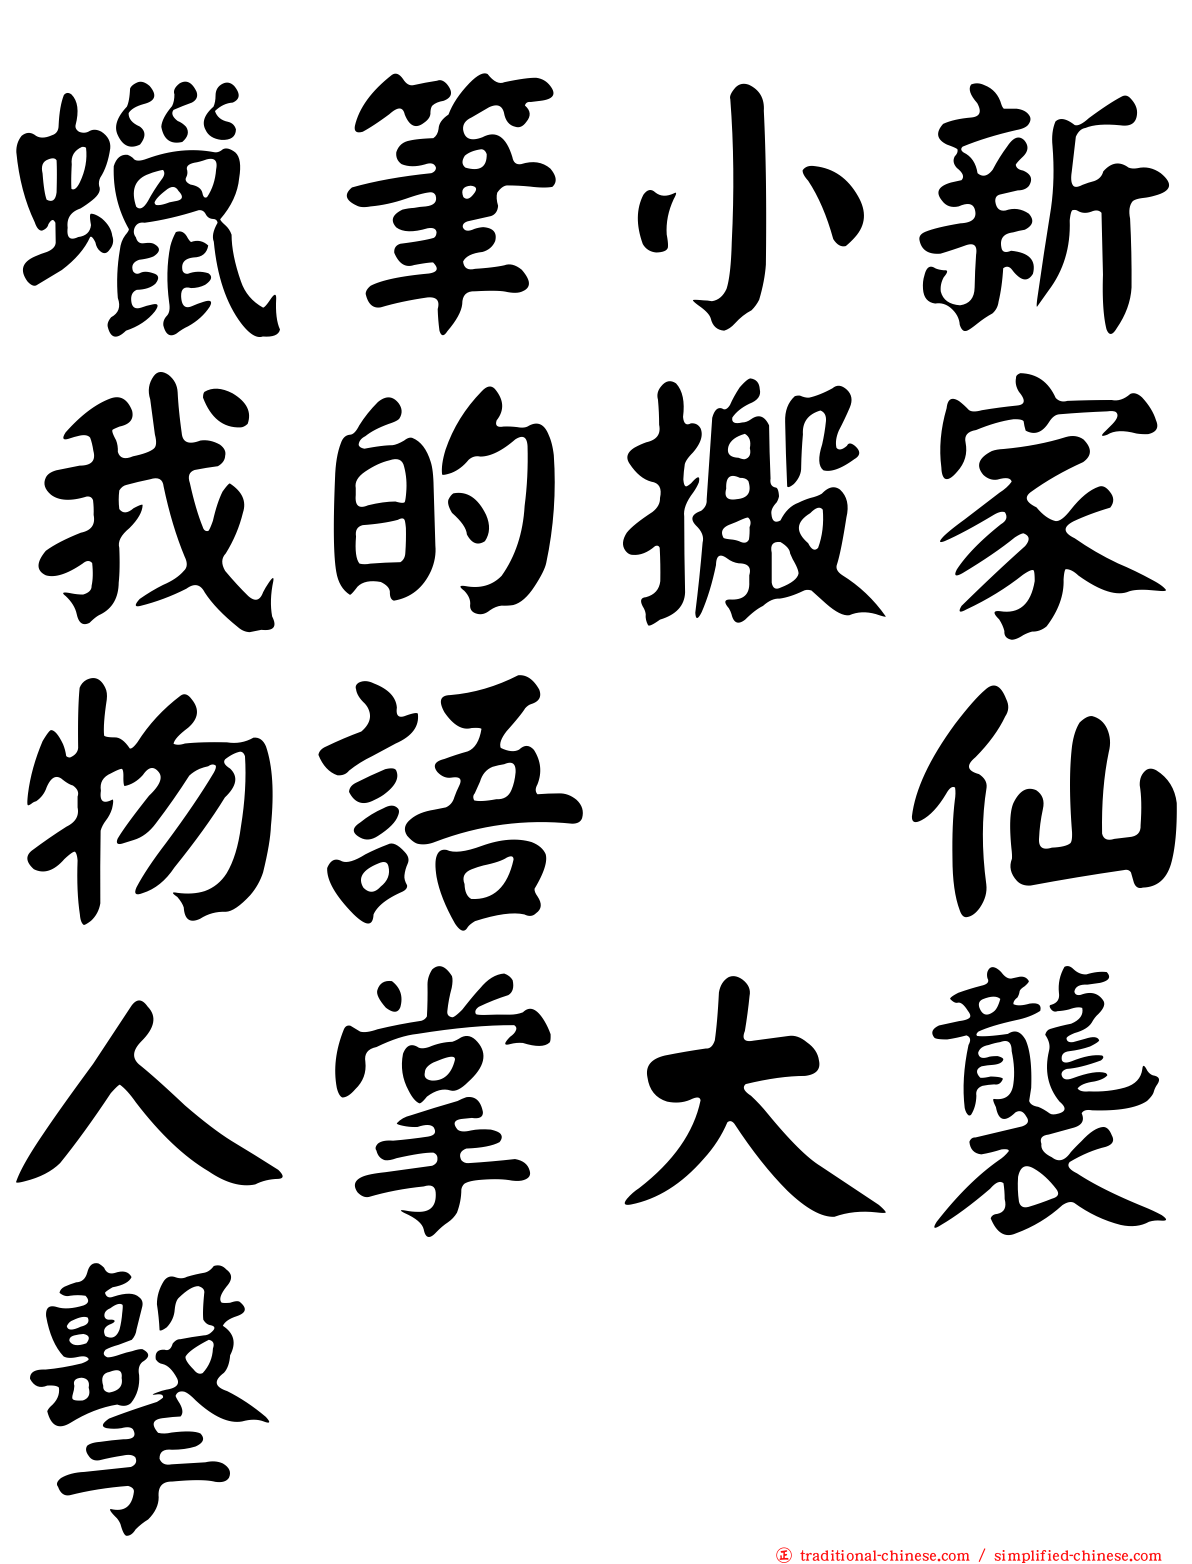 蠟筆小新
我的搬家
物語　仙
人掌大襲
擊
㊣ traditional-chinese.com / simplified-chinese.com